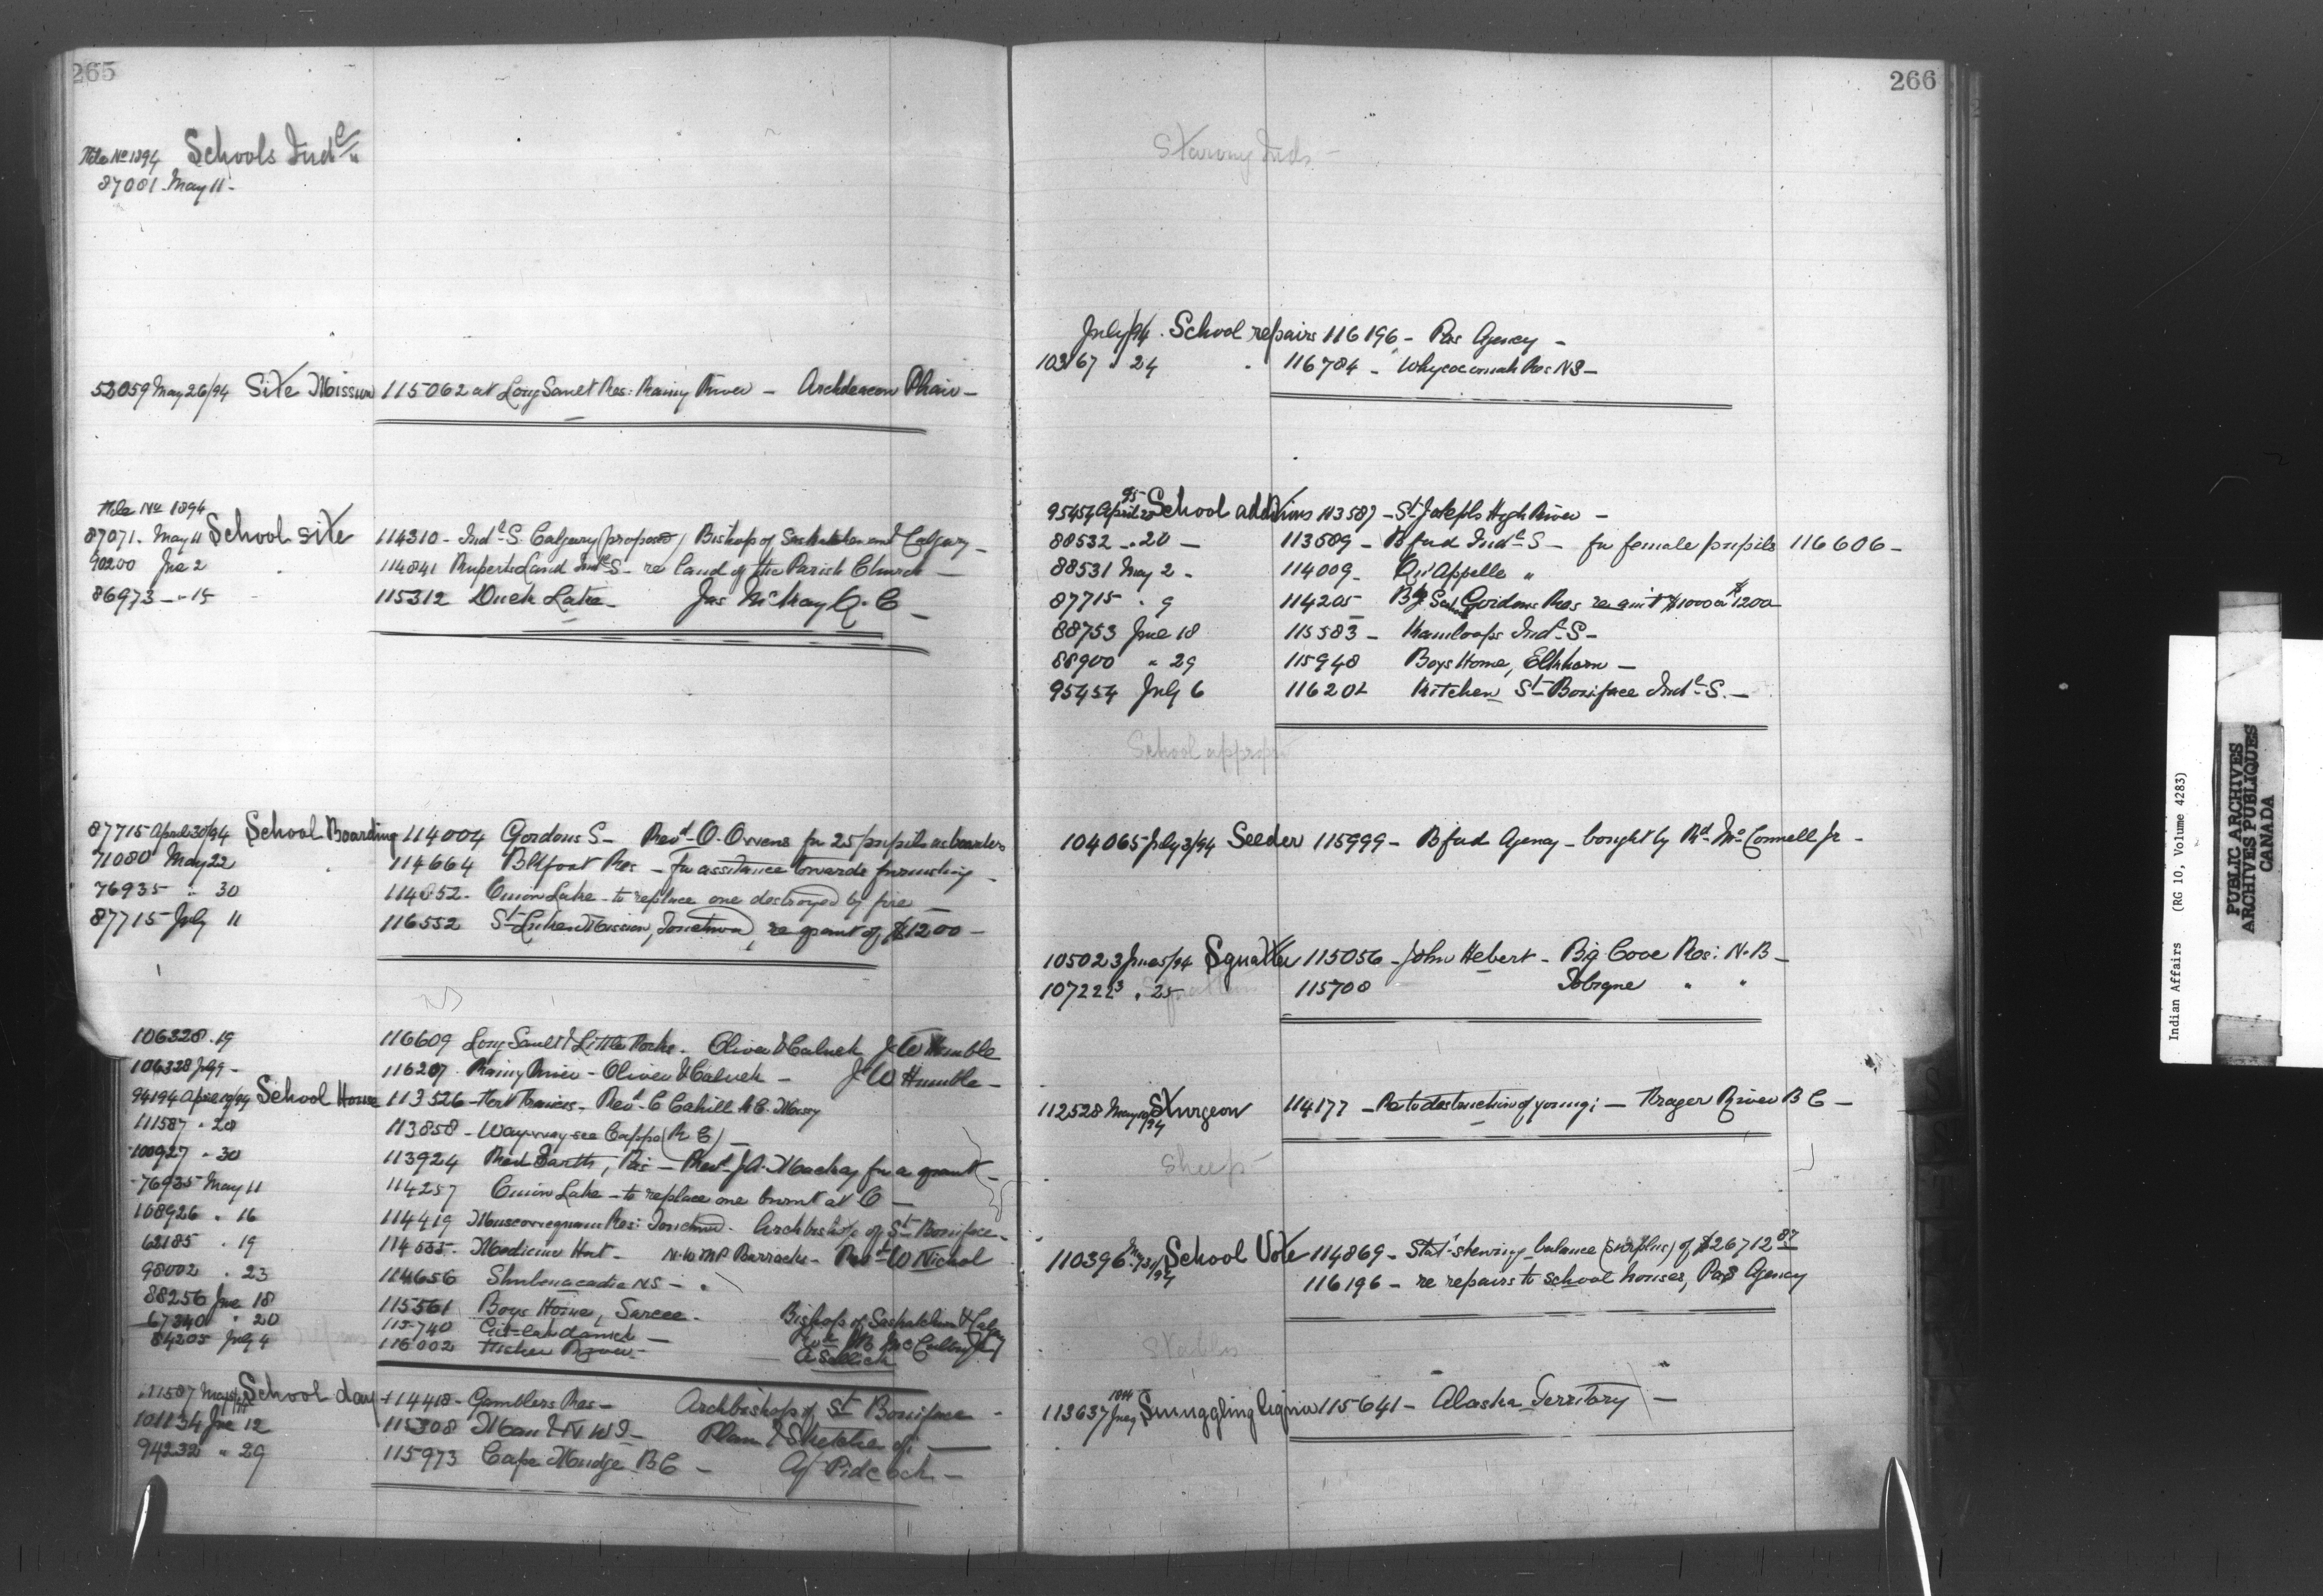 265
File No 1894 Schools Indl
87081 May 11 -
52059 May 26/94 Site Mission 115062 at Long Sault Res: Rainy River - Archdeacon Phair -
File No 1894
87071 - May 11 School site 114310 - Indl S. Calgary (proposed) Bishop of Saskatchewan and Calgary -
90200 Jne 2 114841 Ruperts Land Indl S - re land of the Parish Church -
86973 - " 15 115312 Duck Lake - Jas McKay Q.C -
87715 April 30/94 School Boarding 114004 Gordons S - Revd O. Owens for 25 pupils as boarders
71080 May 22 114664 Blkfoot Res - for assistance towards furnishing -
76935 " 30 114852 - Onion Lake - to replace one destroyed by fire -
87715 July 11 116552 St Lukes Mission, Touchwood, re grant of $1200 -
106328 - 19 116609 Long Sault & Little Forks - Oliver & Calvek J W Humble
106328 July 9 - 116207 - Rainy River - Oliver & Calvek - J W Humble -
94194 April 19/94 School House 113526 - Fort Francis - Revd C Cahill
111587 " 28 113858 - Way way see Cappo (R C) -
100927 " 30 113924 Red Earth, Pas - Revd J A Mackay for a grant -
76935 May 11 114257 Onion Lake - to replace one burnt at C -
108926 " 16 114419 Muscowequans Res: Touchwd - Archbishop of St Boniface -
62185 " 19 114555 - Medicine Hat - N.W.M.P Barracks - Revd W Nichol
98002 " 23 114656 Shubenacadie NS -
88256 Jne 18 115561 Boys Home, Sarcee - Bishop of Saskatchewan & Calgy
67340 " 20 115740 Git-lah-damick -
84205 July 4 116002 Fisher River -
111587 May School day 114418 - Gamblers Res - Archbishop of St Boniface -
101134 Jne 12 115308 Man & N W T - Plan & Sketche of: -
94232 " 29 115973 Cape Mudge B.C - Agt Pidcock -
266
Starving Inds -
July/94 - School repairs 116196 - Pas Agency -
103167 " 24 " 116784 - Whycocomah Res NS -
95454 April 25 95 School additions 113587 - St Josephs High River -
88532 - " 20 - 113589 - Bfud Indl S - for female pupils 116606 -
88531 May 2 - 114009 - Qu'Appelle "
87715 " 9 114205 Bg School Gordons Res re gint $1000 or $1200
88753 Jne 18 115583 - Kamloops Indl S -
88900 " 29 115948 Boys Home, Elkhorn -
95454 July 6 116202 Kitchen St Boniface Indl S. -
School appropn
104065 July 3/94 Seeder 115999 - Bfud Agency - bought by Rd McConnell Jr -
105023 Jne 5/94 Squatter 115056 - John Hebert - Big Cove Res: N.B -
107222 " 25 115708 Tobique " "
112528 May 10/94 Sturgeon 114177 - Re to destruction of young: - Frazer River B C -
Sheep
110396 May 31/94 School Vote 114869 - Statt shewing balance (surplus) of $26712 87
116196 - re repairs to school houses, Pas Agency
Stables
113637 Jne 1894 Smuggling liquor 115641 - Alaska Territory -
Indian Affairs (RG 10, Volume 4283)
PUBLIC ARCHIVES
ARCHIVES PUBLIQUES
CANADA